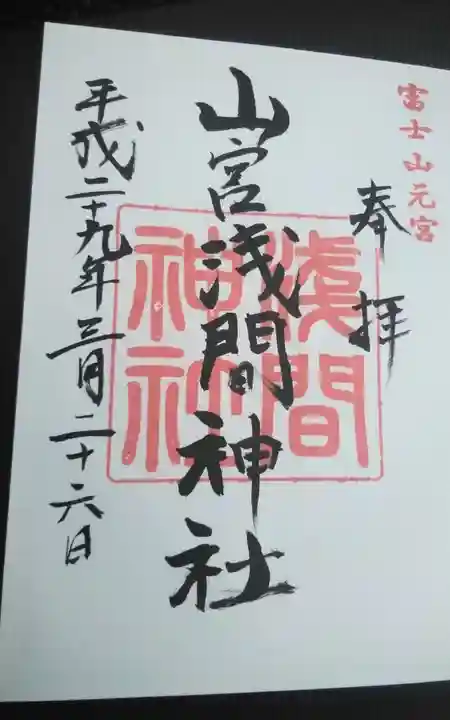 富士山元宮
奉拝
山宮浅間神社
浅間神社
平成二十九年三月二十六日